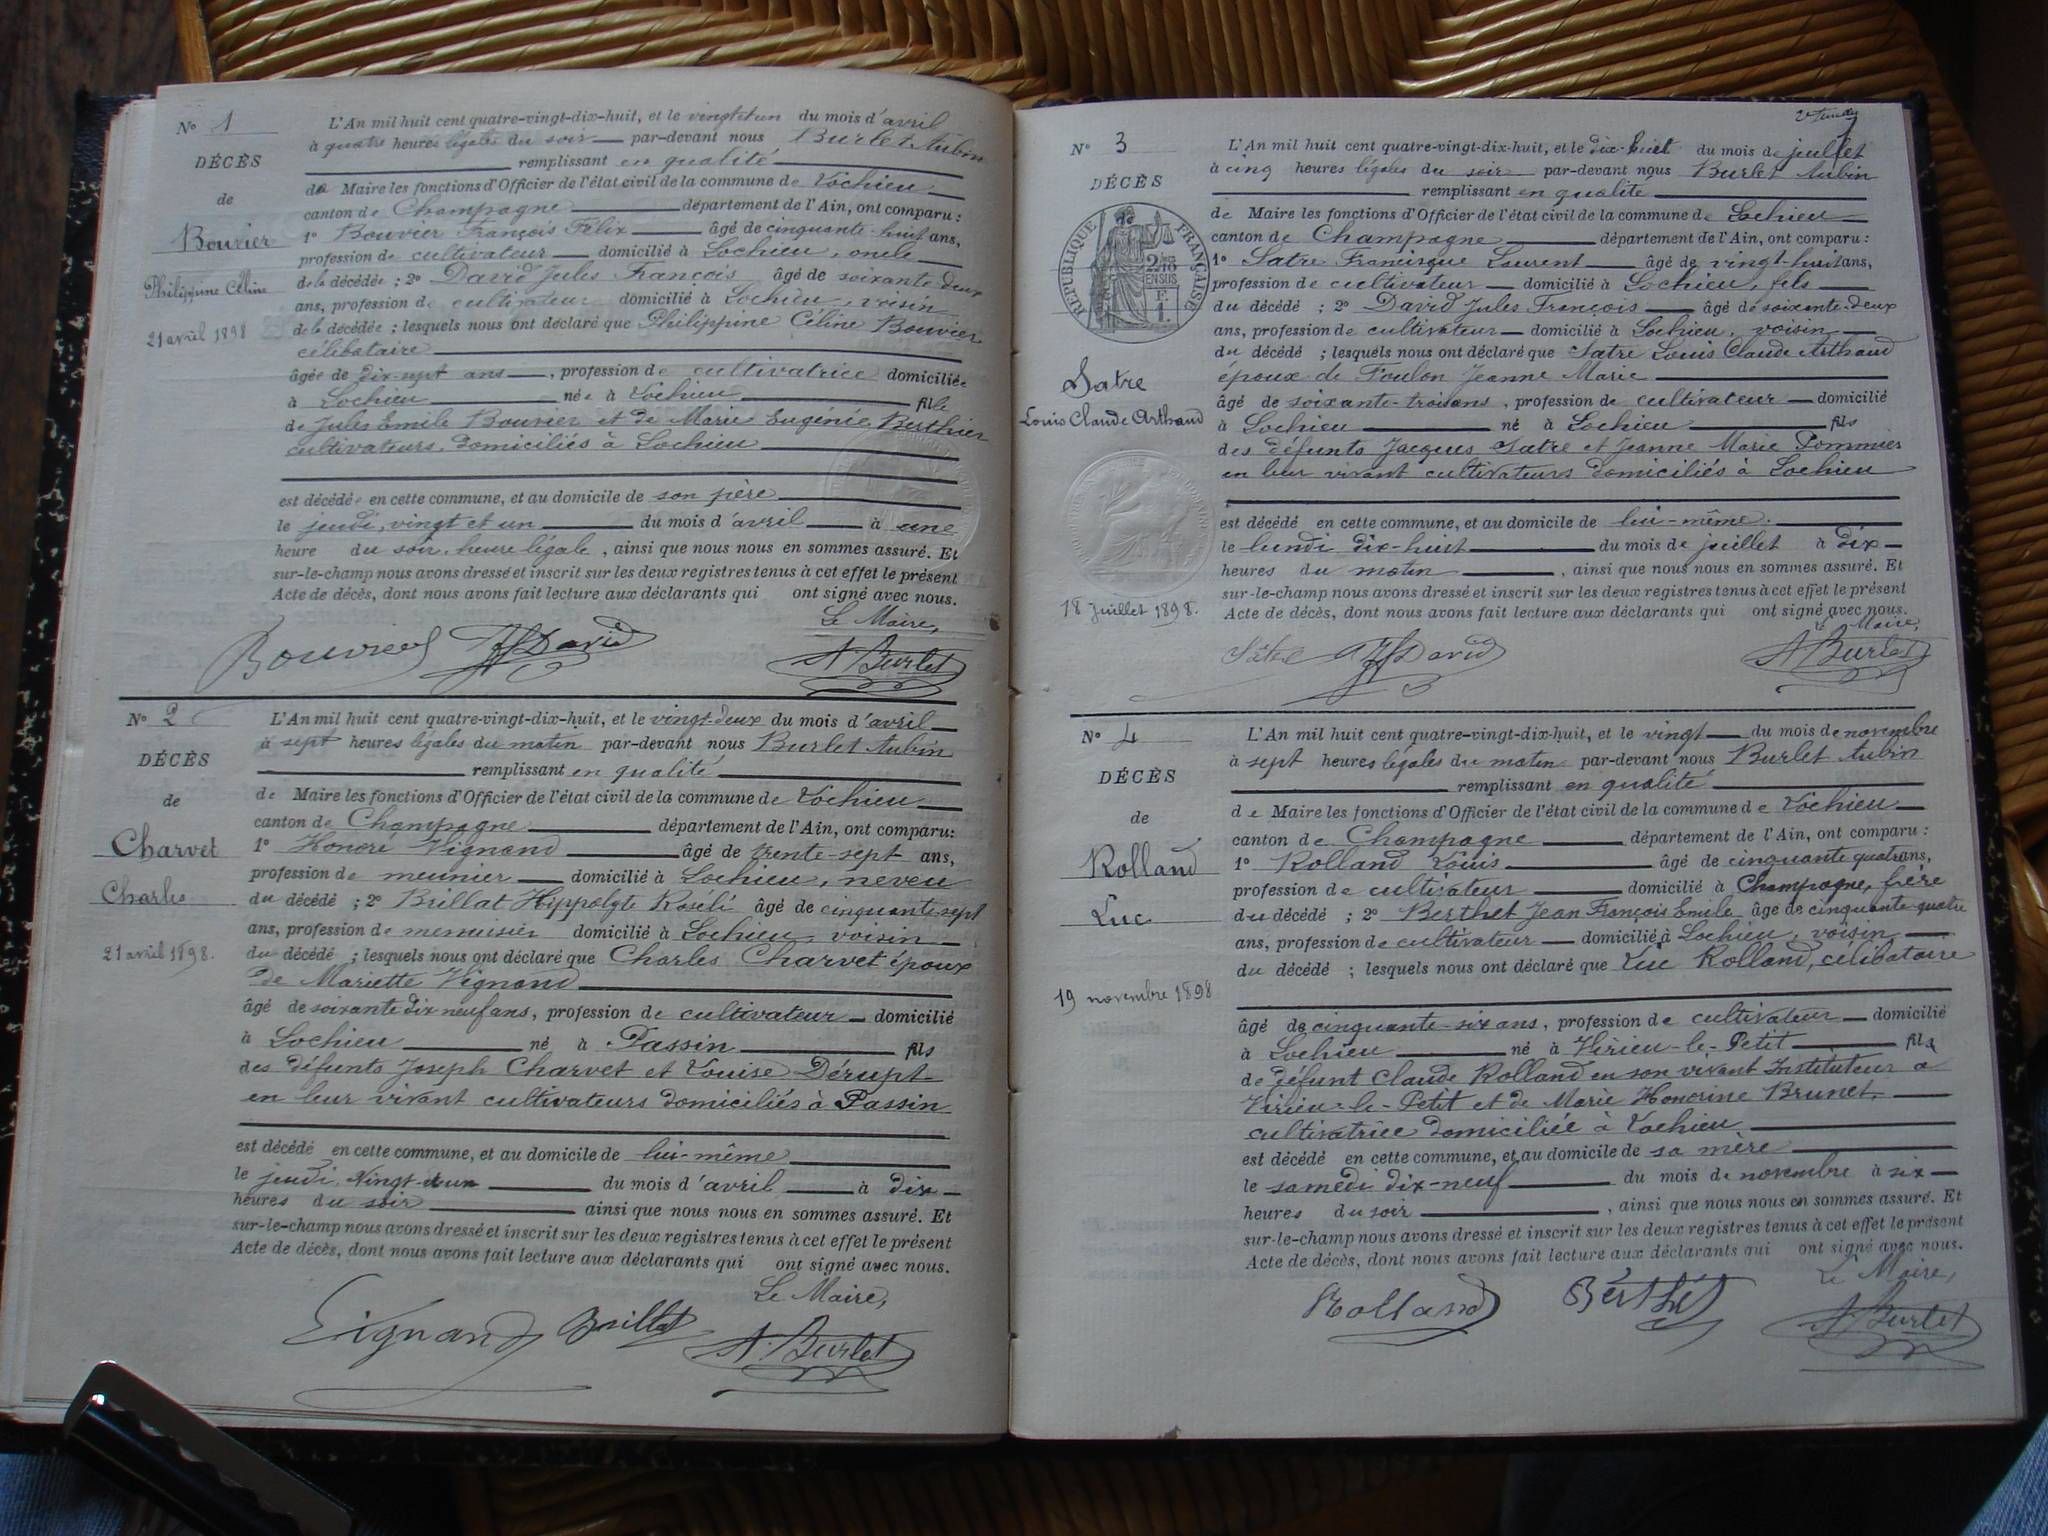 Nº 1
DÉCÈS
de
Bouvier
Philippine Céline
21 avril 1898
L'An mil huit cent quatre-vingt-dix-huit, et le vingt et un du mois d'avril
à quatre heures légales du soir par-devant nous Burlet Aubin
remplissant en qualité
de Maire les fonctions d'Officier de l'état civil de la commune de Lochieu
canton de Champagne département de l'Ain, ont comparu :
1º Bouvier François Félix âgé de cinquante-huit ans,
profession de cultivateur domicilié à Lochieu, oncle
de la décédée ; 2º David Jules François âgé de soixante-deux
ans, profession de cultivateur domicilié à Lochieu, voisin
de la décédée ; lesquels nous ont déclaré que Philippine Céline Bouvier
célibataire
âgée de dix-sept ans, profession de cultivatrice domiciliée
à Lochieu née à Lochieu fille
de Jules Emile Bouvier et de Marie Eugénie Berthier
cultivateurs domiciliés à Lochieu
est décédée en cette commune, et au domicile de son père
le jeudi, vingt et un du mois d'avril à une
heure du soir, heure légale, ainsi que nous nous en sommes assuré. Et
sur-le-champ nous avons dressé et inscrit sur les deux registres tenus à cet effet le présent
Acte de décès, dont nous avons fait lecture aux déclarants qui ont signé avec nous.
Le Maire,
Bouvier JF David A. Burlet
Nº 2
DÉCÈS
de
Charvet
Charles
21 avril 1898.
L'An mil huit cent quatre-vingt-dix-huit, et le vingt-deux du mois d'avril
à sept heures légales du matin par-devant nous Burlet Aubin
remplissant en qualité
de Maire les fonctions d'Officier de l'état civil de la commune de Lochieu
canton de Champagne département de l'Ain, ont comparu:
1º Honoré Vignand âgé de trente-sept ans,
profession de meunier domicilié à Lochieu, neveu
du décédé ; 2º Brillat Hippolyte Roselé âgé de cinquante-sept
ans, profession de menuisier domicilié à Lochieu, voisin
du décédé ; lesquels nous ont déclaré que Charles Charvet époux
de Mariette Vignand
âgé de soixante dix neuf ans, profession de cultivateur domicilié
à Lochieu né à Passin fils
des défunts Joseph Charvet et Louise Dérupt
en leur vivant cultivateurs domiciliés à Passin
est décédé en cette commune, et au domicile de lui-même
le jeudi, vingt et un du mois d'avril à dix
heures du soir ainsi que nous nous en sommes assuré. Et
sur-le-champ nous avons dressé et inscrit sur les deux registres tenus à cet effet le présent
Acte de décès, dont nous avons fait lecture aux déclarants qui ont signé avec nous.
Le Maire,
Vignand Brillat A. Burlet
Nº 3
DÉCÈS
RÉPUBLIQUE FRANÇAISE
2/10 EN SUS
Satre
Louis Claude Arthaud
18 Juillet 1898.
L'An mil huit cent quatre-vingt-dix-huit, et le dix-huit du mois de juillet
à cinq heures légales du soir par-devant nous Burlet Aubin
remplissant en qualité
de Maire les fonctions d'Officier de l'état civil de la commune de Lochieu
canton de Champagne département de l'Ain, ont comparu :
1º Satre Francisque Laurent âgé de vingt-huit ans,
profession de cultivateur domicilié à Lochieu, fils
du décédé ; 2º David Jules François âgé de soixante-deux
ans, profession de cultivateur domicilié à Lochieu, voisin
du décédé ; lesquels nous ont déclaré que Satre Louis Claude Arthaud
époux de Poulon Jeanne Marie
âgé de soixante-trois ans, profession de cultivateur domicilié
à Lochieu né à Lochieu fils
des défunts Jacques Satre et Jeanne Marie Pommier
en leur vivant cultivateurs domiciliés à Lochieu
est décédé en cette commune, et au domicile de lui-même.
le lundi dix-huit du mois de juillet à dix
heures du matin, ainsi que nous nous en sommes assuré. Et
sur-le-champ nous avons dressé et inscrit sur les deux registres tenus à cet effet le présent
Acte de décès, dont nous avons fait lecture aux déclarants qui ont signé avec nous.
Le Maire,
Satre JF David A. Burlet
Nº 4
DÉCÈS
de
Rolland
Luc
19 novembre 1898
L'An mil huit cent quatre-vingt-dix-huit, et le vingt du mois de novembre
à sept heures légales du matin par-devant nous Burlet Aubin
remplissant en qualité
de Maire les fonctions d'Officier de l'état civil de la commune de Lochieu
canton de Champagne département de l'Ain, ont comparu :
1º Rolland Louis âgé de cinquante quatre ans,
profession de cultivateur domicilié à Champagne, frère
du décédé ; 2º Berthet Jean François Emile âgé de cinquante-quatre
ans, profession de cultivateur domicilié à Lochieu, voisin
du décédé ; lesquels nous ont déclaré que Luc Rolland, célibataire
âgé de cinquante-six ans, profession de cultivateur domicilié
à Lochieu né à Virieu-le-Petit fils
de défunt Claude Rolland en son vivant Instituteur à
Virieu-le-Petit et de Marie Honorine Brunet,
cultivatrice domiciliée à Lochieu
est décédé en cette commune, et au domicile de sa mère
le samedi dix-neuf du mois de novembre à six
heures du soir, ainsi que nous nous en sommes assuré. Et
sur-le-champ nous avons dressé et inscrit sur les deux registres tenus à cet effet le présent
Acte de décès, dont nous avons fait lecture aux déclarants qui ont signé avec nous.
Le Maire,
Rolland Berthet A. Burlet